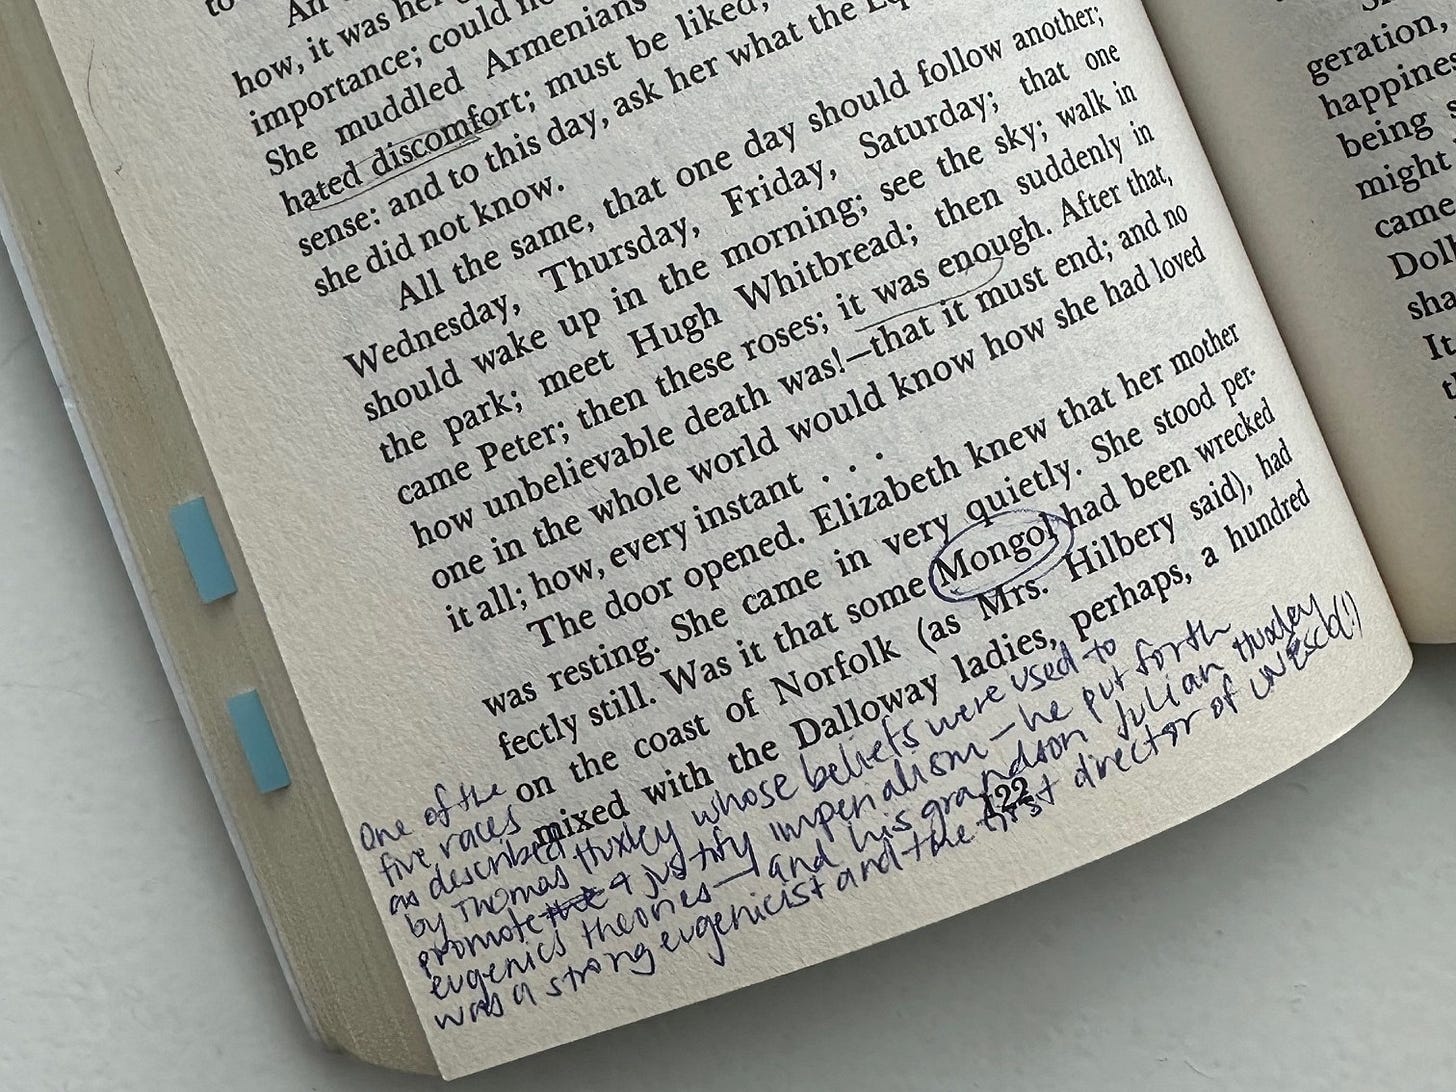 to
An
how, it was her
importance; could
She muddled Armenians
hated discomfort; must be liked;
sense: and to this day, ask her what the Equ
she did not know.
All the same, that one day should follow another;
Wednesday, Thursday, Friday, Saturday; that one
should wake up in the morning; see the sky; walk in
the park; meet Hugh Whitbread; then suddenly in
came Peter; then these roses; it was enough. After that,
how unbelievable death was!—that it must end; and no
one in the whole world would know how she had loved
it all; how, every instant . . .
The door opened. Elizabeth knew that her mother
was resting. She came in very quietly. She stood per-
fectly still. Was it that some Mongol had been wrecked
on the coast of Norfolk (as Mrs. Hilbery said), had
mixed with the Dalloway ladies, perhaps, a hundred
122
One of the
five races
as described
by Thomas Huxley whose beliefs were used to
promote the & justify imperialism—he put forth
eugenics theories—and his grandson Julian Huxley
was a strong eugenicist and the first director of UNESCO(!)
geration,
happines
being
might
came
Doll
sha
It